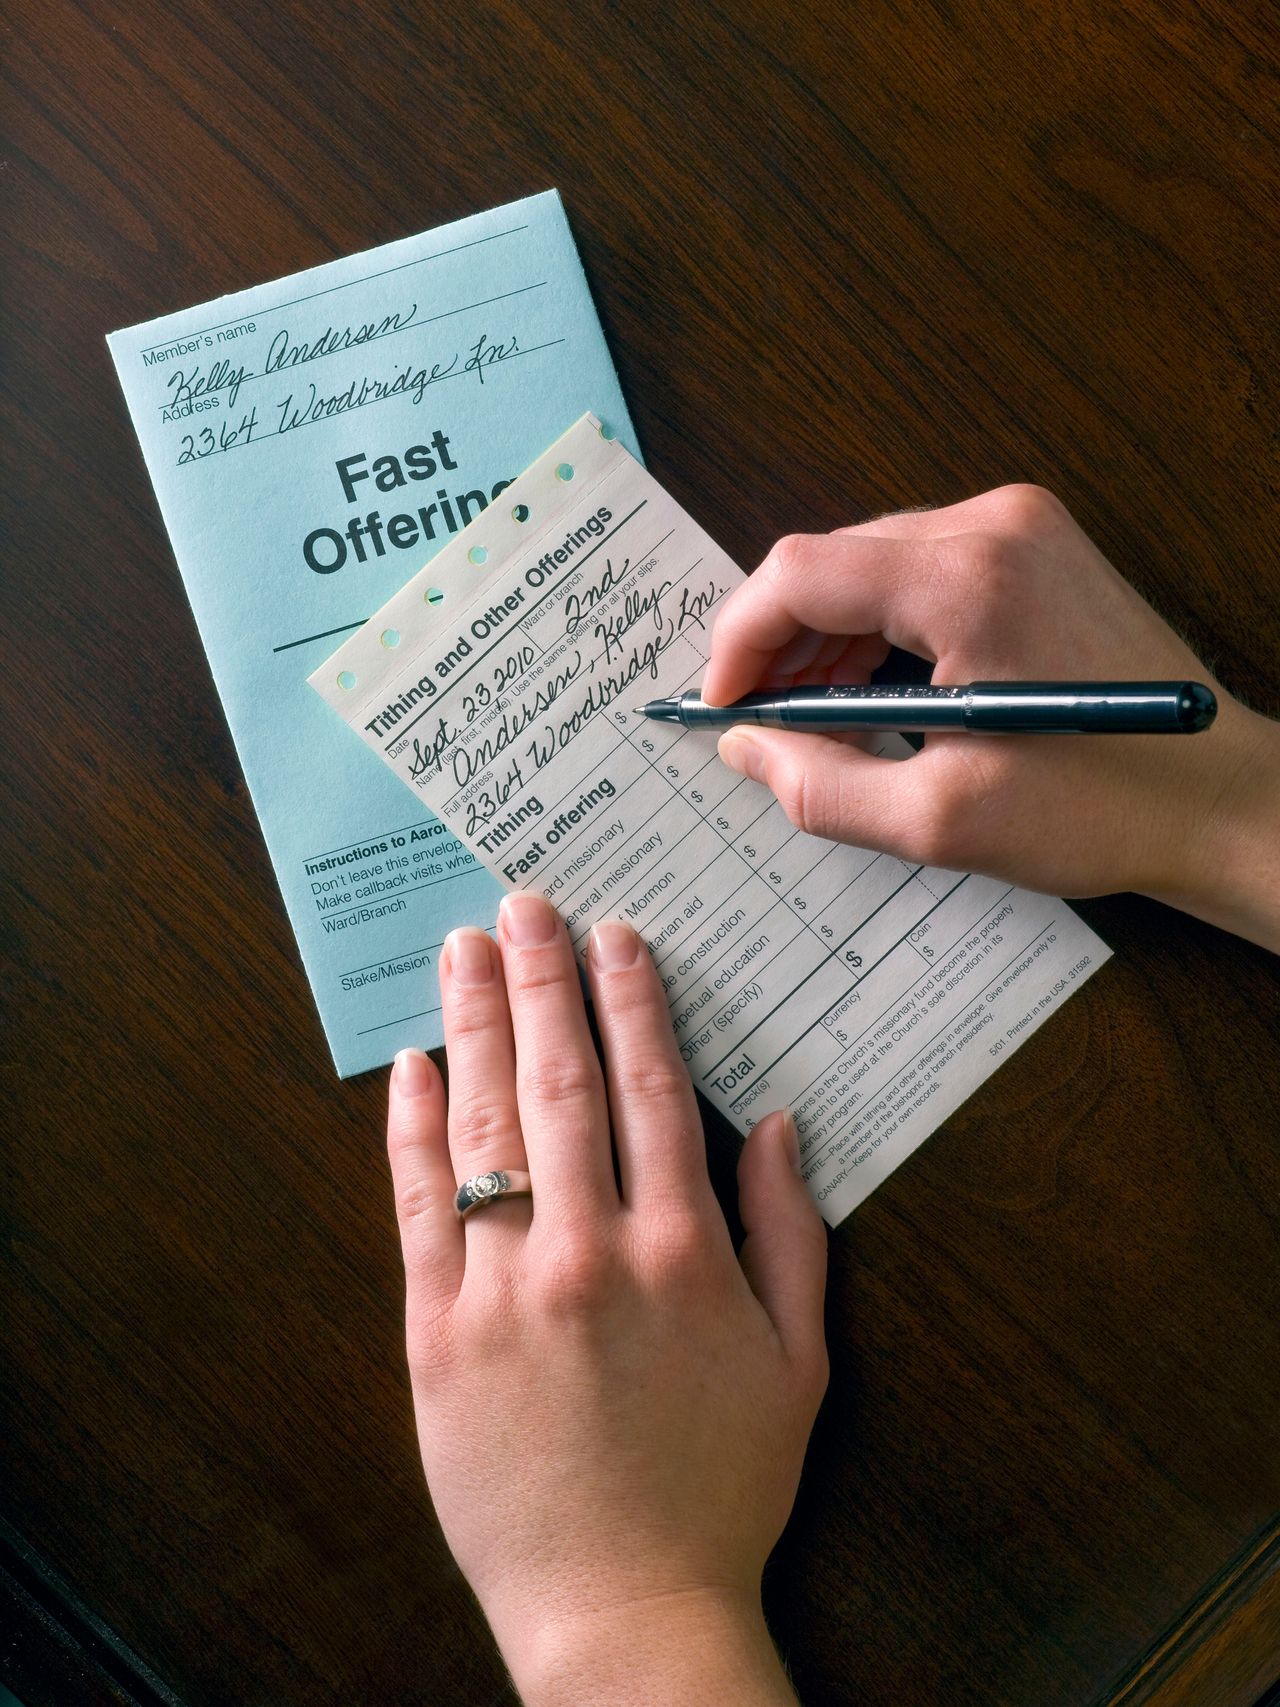 Member's name
Kelly Andersen
Address
2364 Woodbridge Ln.
Fast
Offering
Instructions to Aaro
Don't leave this envelop
Make callback visits whe
Ward/Branch
Stake/Mission
Tithing and Other Offerings
Date
Ward or branch
Sept. 23 2010
2nd
Name (last, first, middle). Use the same spelling on all your slips.
Andersen, Kelly
Full address
2364 Woodbridge Ln.
Tithing
$
Fast offering
$
ard missionary
$
eneral missionary
$
f Mormon
$
itarian aid
$
le construction
$
rpetual education
$
Other (specify)
$
Total
$
Check(s)
$
Currency
$
Coin
$
ations to the Church's missionary fund become the property
Church to be used at the Church's sole discretion in its
sionary program.
WHITE—Place with tithing and other offerings in envelope. Give envelope only to
a member of the bishopric or branch presidency.
CANARY—Keep for your own records.
5/01. Printed in the USA. 31592
PILOT V BALL EXTRA FINE
JAPAN